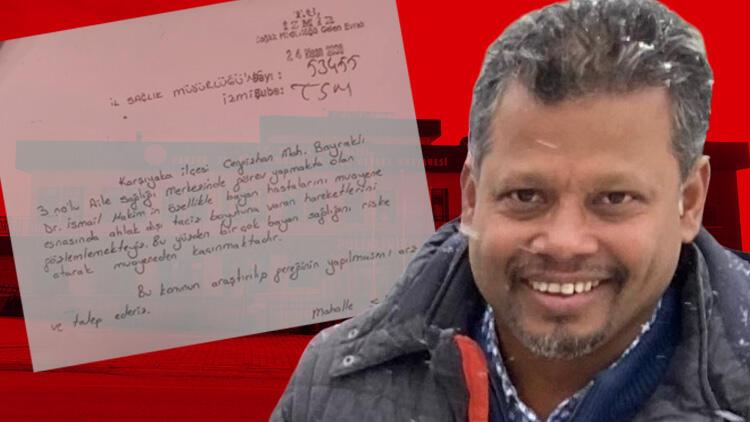 T.C.
İZMİR
Sağlık Müdürlüğü Gelen Evrak
24 Nisan 2008
53455
İL SAĞLIK MÜDÜRLÜĞÜ'NE Sayı:
İzmir Şube: TSM
Karşıyaka ilçesi Cengizhan Mah. Bayraklı
3 no'lu Aile sağlığı Merkezinde görev yapmakta olan
Dr. İsmail Hakim'in özellikle bayan hastalarını muayene
esnasında ahlak dışı taciz boyutuna varan hareketlerini
gözlemlemekteyiz. Bu yüzden bir çok bayan sağlığını riske
atarak muayeneden kaçınmaktadır.
Bu konunun araştırılıp gereğinin yapılmasını arz
ve talep ederiz.
Mahalle